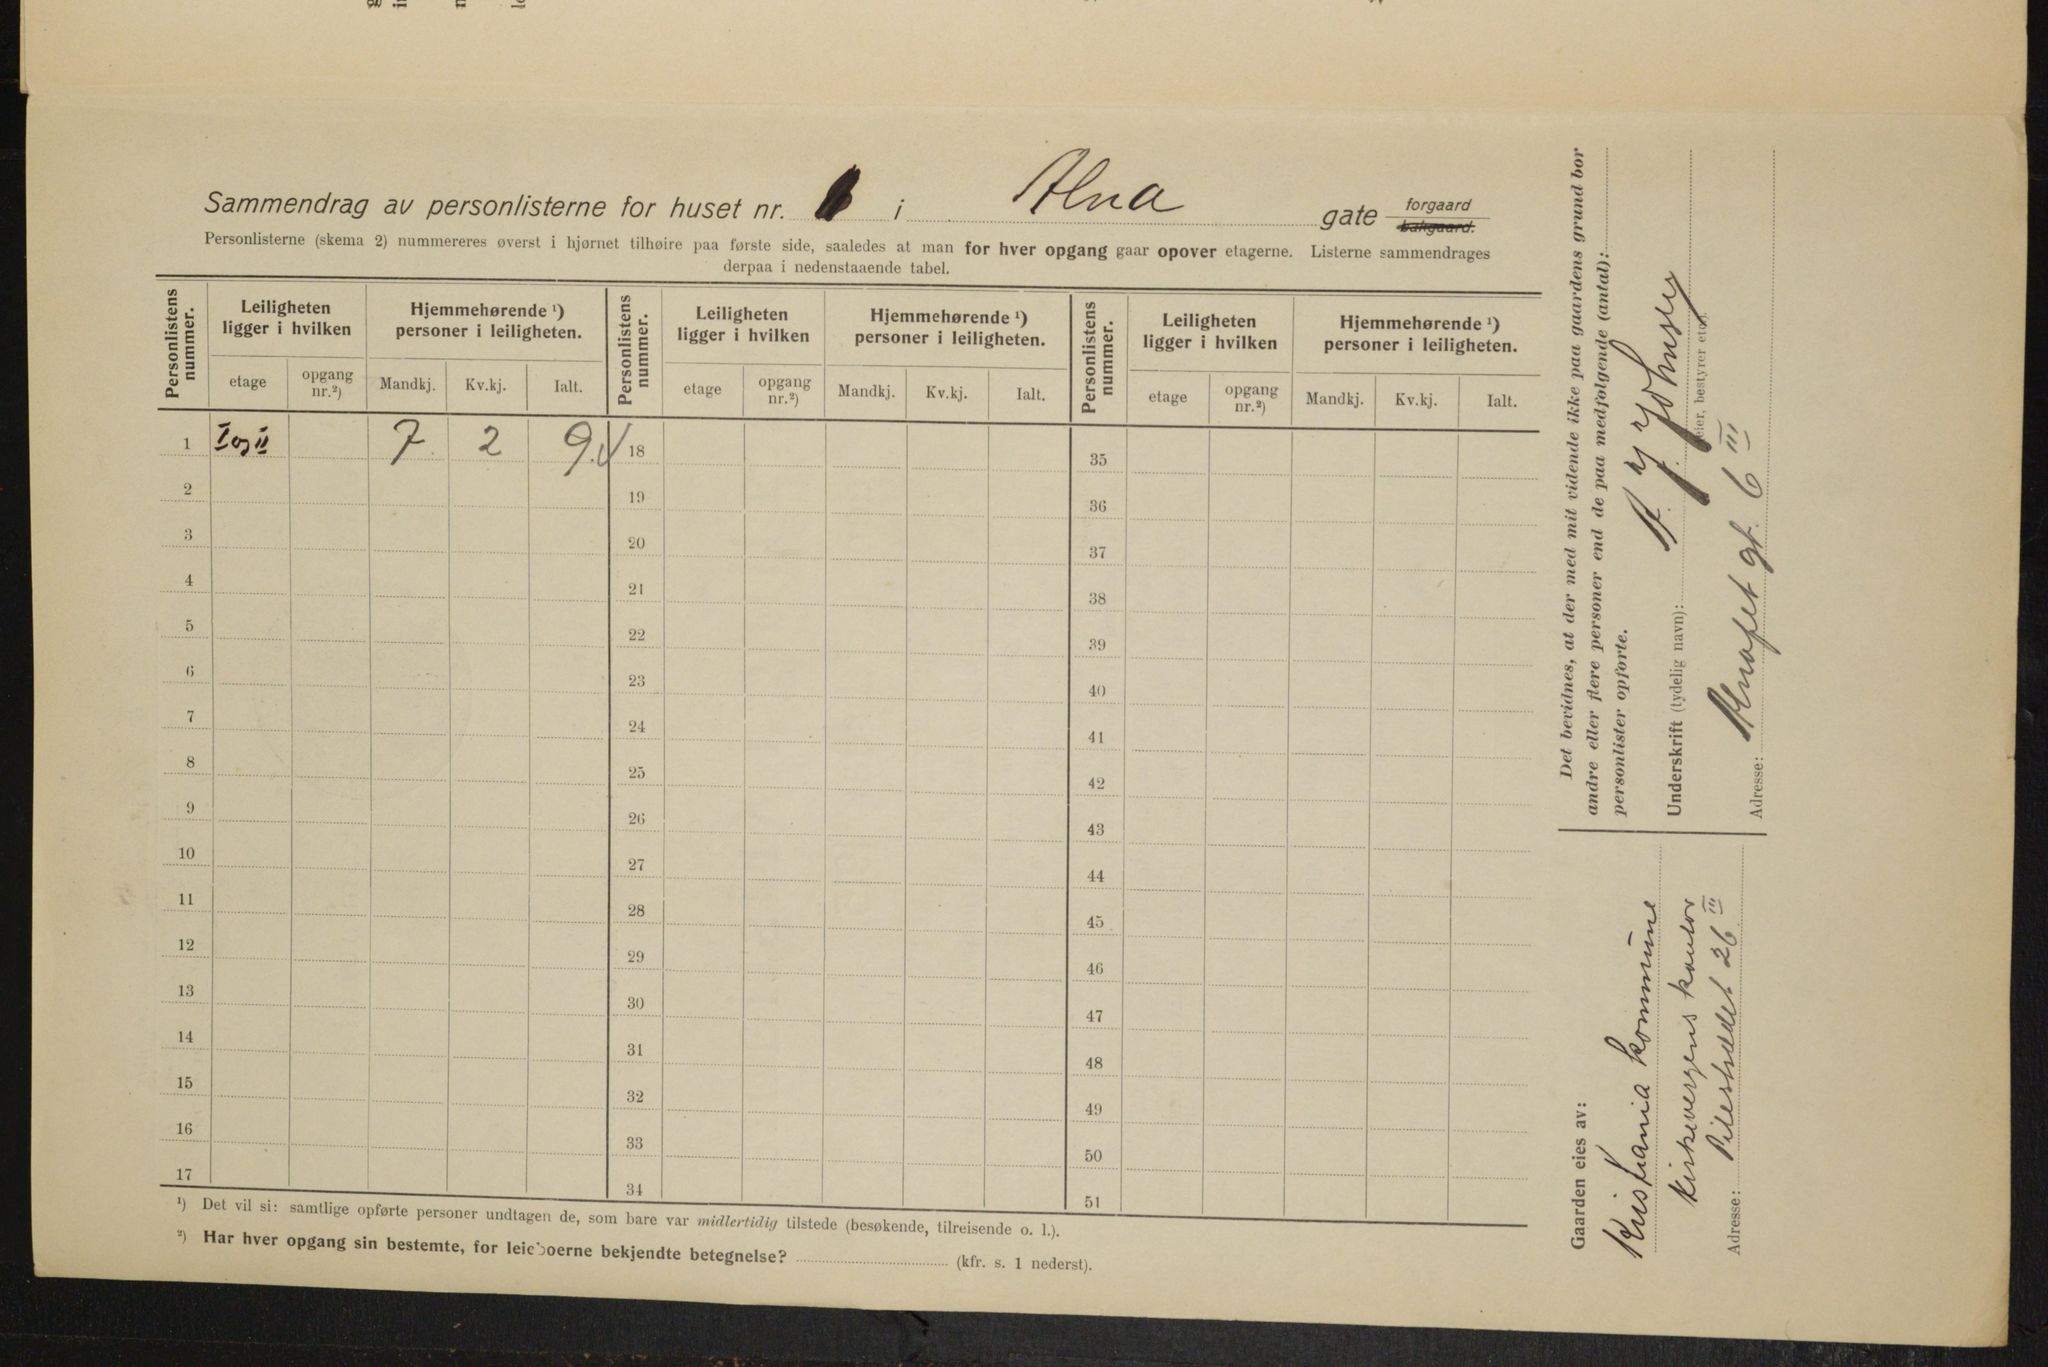 Sammendrag av personlisterne for huset nr. i Alna gate forgaard
bakgaard.
Personlisterne (skema 2) nummereres øverst i hjørnet tilhøire paa første side, saaledes at man for hver opgang gaar opover etagerne. Listerne sammendrages
derpaa i nedenstaaende tabel.
Personlistens nummer. Leiligheten ligger i hvilken Hjemmehørende ¹) personer i leiligheten. Personlistens nummer. Leiligheten ligger i hvilken Hjemmehørende ¹) personer i leiligheten. Personlistens nummer. Leiligheten ligger i hvilken Hjemmehørende ¹) personer i leiligheten.
etage opgang nr.²) Mandkj. Kv.kj. Ialt. etage opgang nr.²) Mandkj. Kv.kj. Ialt. etage opgang nr.²) Mandkj. Kv.kj. Ialt.
1 I og II 7 2 9 18 35
2 19 36
3 20 37
4 21 38
5 22 39
6 23 40
7 24 41
8 25 42
9 26 43
10 27 44
11 28 45
12 29 46
13 30 47
14 31 48
15 32 49
16 33 50
17 34 51
¹) Det vil si: samtlige opførte personer undtagen de, som bare var midlertidig tilstede (besøkende, tilreisende o. l.).
²) Har hver opgang sin bestemte, for leieboerne bekjendte betegnelse? (kfr. s. 1 nederst).
Det bevidnes, at der med mit vidende ikke paa gaardens grund bor
andre eller flere personer end de paa medfølgende (antal):
personlister opførte.
Underskrift (tydelig navn):
eier, bestyrer etc.
Adresse: gt. 6 III
Gaarden eies av:
Kristiania kommune
Kirkevergens kontor
Adresse: Pilestrædet 26 III